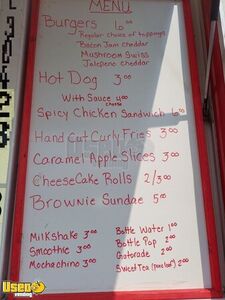 MENU
Burgers 6.00
Regular choice of toppings
Bacon Jam Cheddar
Mushroom Swiss
Jalepeno Cheddar
Hot Dog 3.00
With Sauce 4.00
cheese
Spicy Chicken Sandwich 6.00
Hand Cut Curly Fries 3.00
Caramel Apple Slices 3.00
CheeseCake Rolls 2/3.00
Brownie Sundae 5.00
Milkshake 3.00
Smoothie 3.00
Mochachino 3.00
Bottle Water 1.00
Bottle Pop 2.00
Gatorade 2.00
Sweet Tea 2.00
Used
vending